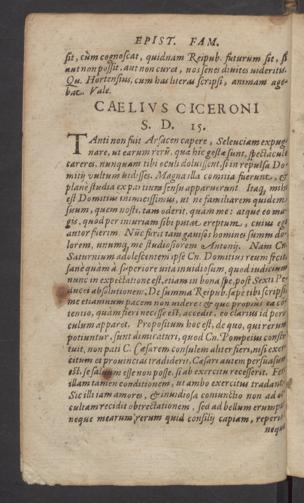 EPIST. FAM.
sit, cùm cognoscat, quidnam Reipub. futurum sit, si
aut non possit, aut non curet, nos senes diuites uideritis.
Qu. Hortensius, cum has literas scripsi, animam age-
bat. Vale.
CAELIVS CICERONI
S. D. 15.
TAnti non fuit Arsacen capere, Seleuciam expug-
nare, ut earum rerū, quæ hic gestæ sunt, spectaculo
careres. nunquam tibi oculi doluissent, si in repulsa Do-
mitij uultum uidisses. Magna illa comitia fuerunt, &
planè studia ex partium sensu apparuerunt. Itaq; mihi
est Domitius inimicissimus, ut ne familiarem quidem
suum, quem nosti, tam oderit, quàm me: atque eo ma-
gis, quòd per iniuriam sibi putat ereptum, cuius ego
autor fuerim. Nūc furit tam gauisos homines suum do-
lorem, unumq; me studiosiorem Antonij. Nam Cn.
Saturninum adolescentem ipse Cn. Domitius reum fecit,
sanè quàm à superiore uita inuidiosum, quod iudicium
nunc in expectatione est, etiam in bona spe, post Sexti Pe-
ducei absolutionem. De summa Reipub. sæpe tibi scripsi,
me etiam unum pacem non uidere: & quo propius ea con-
tentio, quam fieri necesse est, accedit, eo clarius id peri-
culum apparet. Propositum hoc est, de quo, qui rerum
potiuntur, sunt dimicaturi, quòd Cn. Pompeius consti-
tuit, non pati C. Cæsarem consulem aliter fieri, nisi exer-
citum et prouincias tradiderit. Cæsari autem persuasum
est, se saluum esse non posse, si ab exercitu recesserit. Fert
illam tamen conditionem, ut ambo exercitus tradant.
Sic illi iam amores, & inuidiosa coniunctio non ad oc-
cultam recidit obtrectationem, sed ad bellum erumpit.
neque mearum rerum quid consilij capiam, reperio.
neque